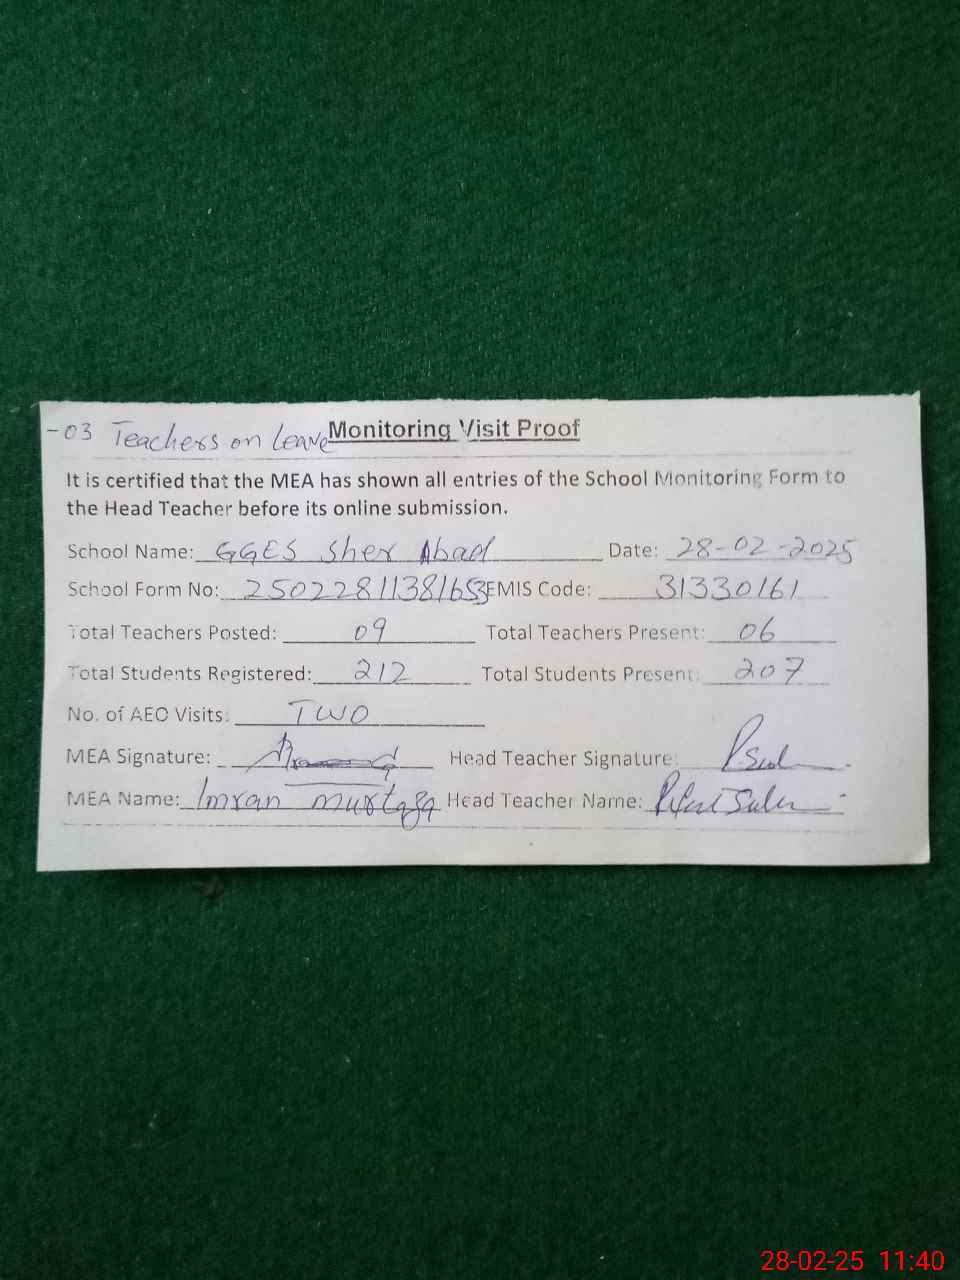 -03 Teachers on Leave Monitoring Visit Proof
It is certified that the MEA has shown all entries of the School Monitoring Form to
the Head Teacher before its online submission.
School Name: GGES Sher Abad Date: 28-02-2025
School Form No: 25022811381653 EMIS Code: 31330161
Total Teachers Posted: 09 Total Teachers Present: 06
Total Students Registered: 212 Total Students Present: 207
No. of AEO Visits: TWO
MEA Signature: Head Teacher Signature:
MEA Name: Imran murtaza Head Teacher Name:
28-02-25 11:40